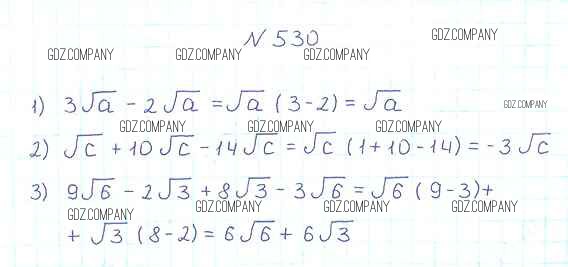 № 530
GDZ.COMPANY
GDZ.COMPANY GDZ.COMPANY GDZ.COMPANY
1) 3√a - 2√a = √a (3-2) = √a
GDZ.COMPANY
GDZ.COMPANY GDZ.COMPANY GDZ.COMPANY
2) √c + 10√c - 14√c = √c (1+10-14) = -3√c
3) 9√6 - 2√3 + 8√3 - 3√6 = √6 (9-3)+
GDZ.COMPANY GDZ.COMPANY GDZ.COMPANY GDZ.COMPANY
+ √3 (8-2) = 6√6 + 6√3